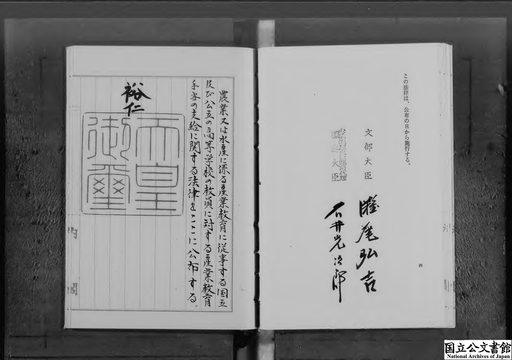 この法律は、公布の日から施行する。
文部大臣
灘尾弘吉
国務大臣
石井光次郎
四
農業又は水産に係る産業教育に従事する国立
及び公立の高等学校の教員に対する産業教育
手当の支給に関する法律をここに公布する。
裕仁
天皇
御璽
内閣
国立公文書館
National Archives of Japan